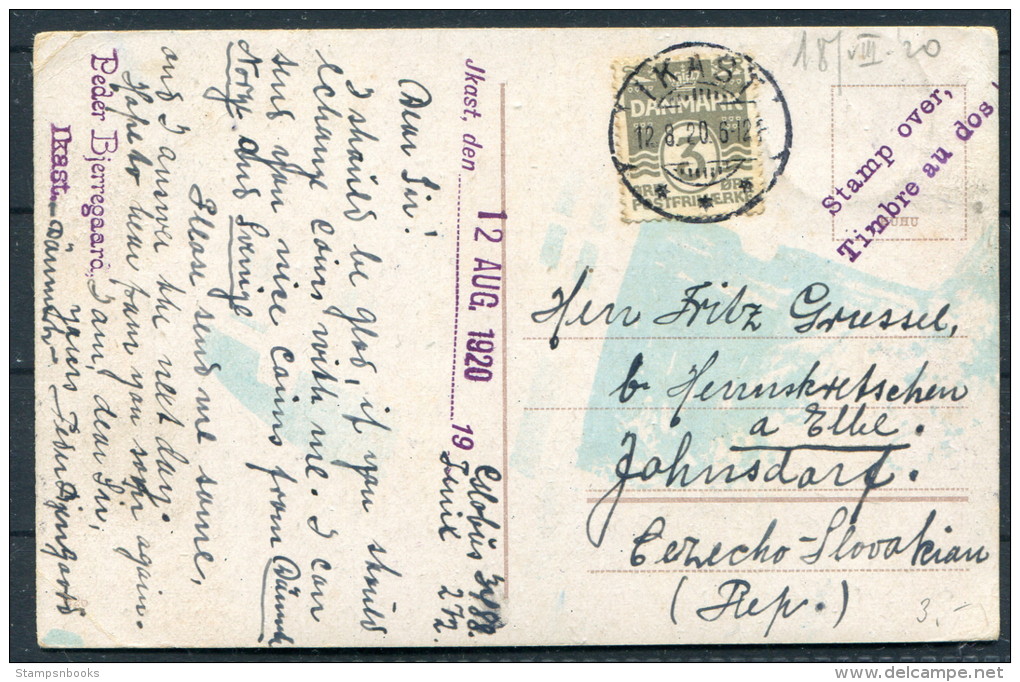 Jkast, den 12 AUG. 1920 19
Globus
Junix 272.
Dear Sir!
I should be glad, if you should
echange coins with me. I can
send you nice coins from Dänmk
Norge and Sverige
Please send me same,
and I answer the next day.
Hope to hear from you soon again.
I am, dear Sir,
yours
Peder Bjerregaard,
Ikast. Dänmark
IKAST
12.8.20. 6-12
DANMARK
3
ØRE ØRE
POSTFRIMÆRKE
18/VIII.20
Stamp over,
Timbre au dos
Herr Fritz Grussel,
b. Herrnskretschen
a Elbe.
Johnsdorf.
Cezecho-Slovakian
(Rep.)
3.-
Stampsnbooks
delcampe.net